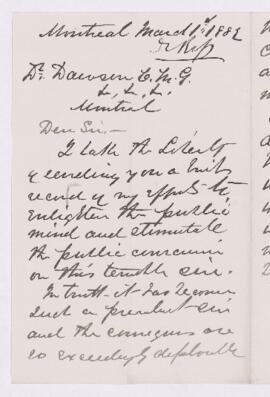 Montreal March 1st 1882
Dr. Dawson C.M.G.
&. &. &.
Montreal
Dear Sir,-
I take the liberty
of sending you a brief
record of my efforts to
enlighten the public
mind and stimulate
the public conscience
on this terrible sin.
In truth it has become
such a prevalent sin
and the consequences are
so exceedingly deplorable